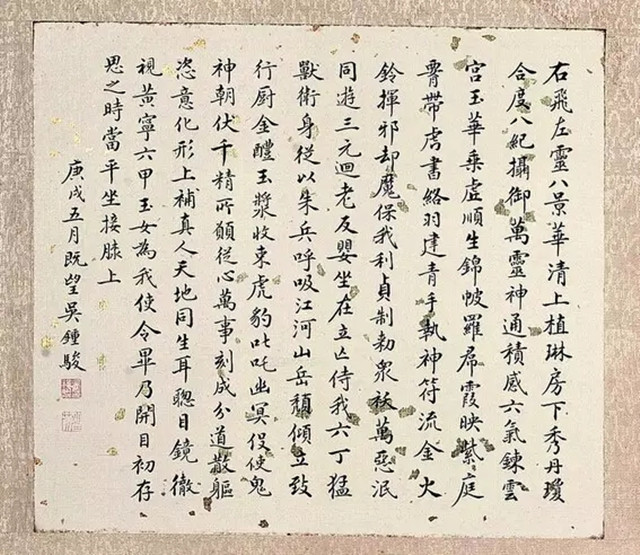 右飛左靈八景華清上植琳房下秀丹瓊
合度八紀攝御萬靈神通積感六氣鍊雲
宮玉華乘虛順生錦帔羅帬霞映紫庭
帶虎書絡羽建青手執神符流金火
鈴揮邪却魔保我利貞制勅衆祅萬惡泯
同遊三元迴老反嬰坐在立亡侍我六丁猛
獸衛身從以朱兵呼吸江河山岳頹傾立致
行厨金醴玉漿收束虎豹叱吒幽冥役使鬼
神朝伏千精所願從心萬事刻成分道散軀
恣意化形上補真人天地同生耳聰目鏡徹
視黃寧六甲玉女為我使令畢乃開目初存
思之時當平坐接膝上
庚戌五月既望吳鍾駿